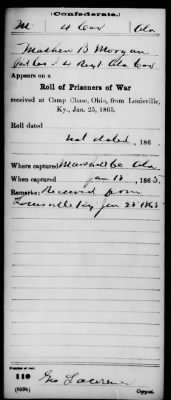 (Confederate.)
M 4 Cav Ala
Mathew B Morgan
4 Regt Ala Cav
Appears on a
Roll of Prisoners of War
received at Camp Chase, Ohio, from Louisville,
Ky., Jan. 25, 1865.
Roll dated
not dated, 186 .
Where captured Marshall Co Ala
When captured Jan 13, 1865.
Remarks: Received from
Louisville Ky Jan 25 1865
Number of roll:
110
(639b) Geo Lawrence
Copyist.